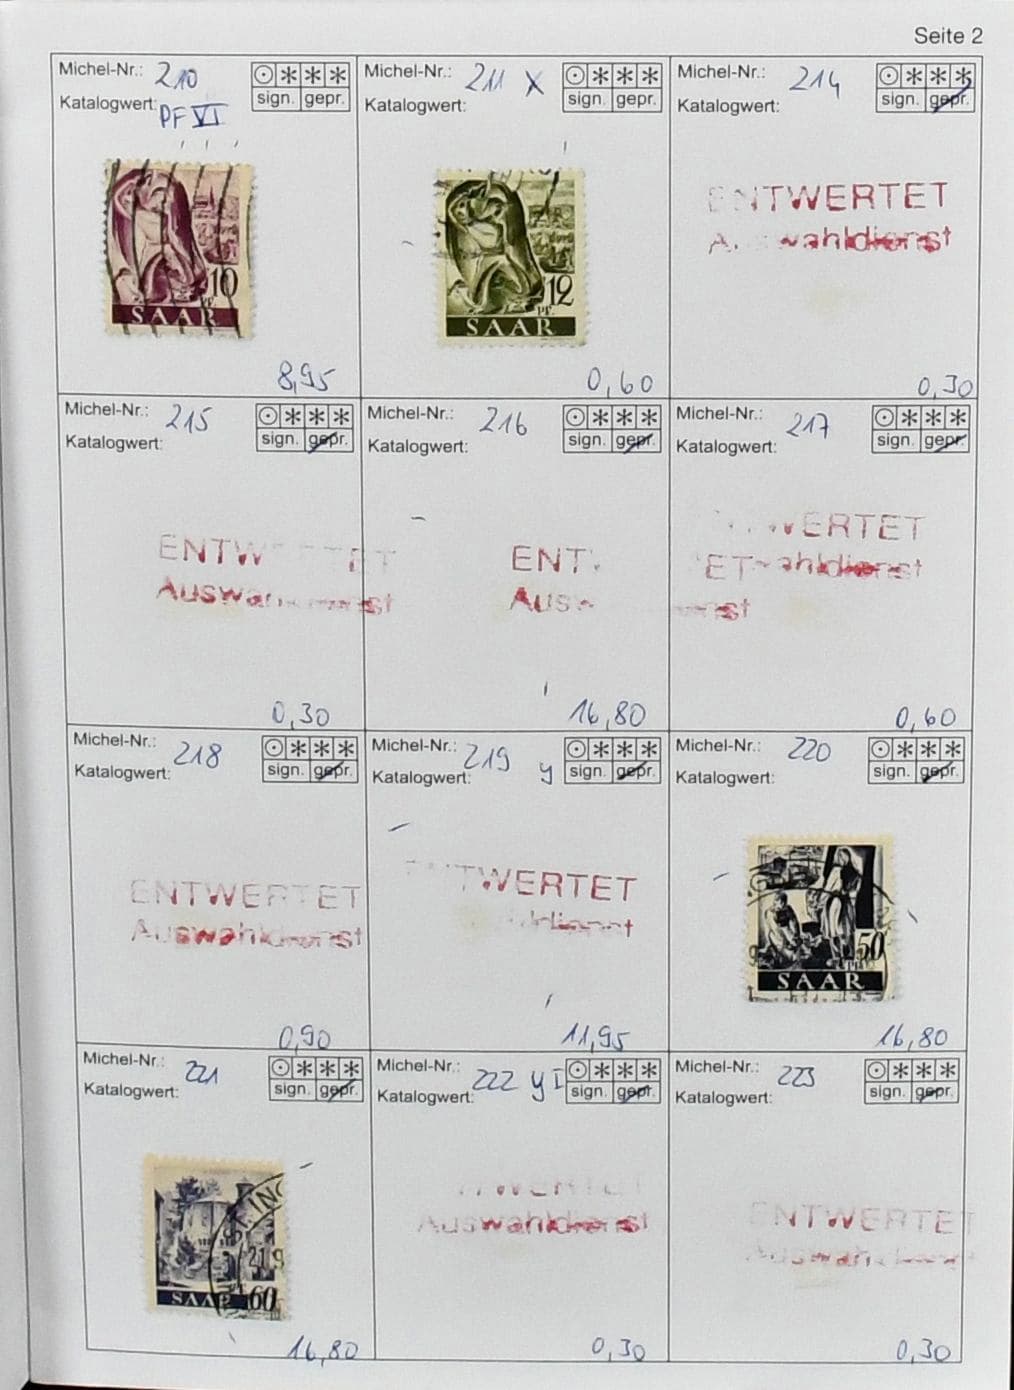 Seite 2
Michel-Nr.: 210
Katalogwert:
PF VI
sign. gepr.
10
PF.
SAAR
8,95
Michel-Nr.: 211 X
Katalogwert:
sign. gepr.
12
PF.
SAAR
0,60
Michel-Nr.: 214
Katalogwert:
sign. gepr.
ENTWERTET
Auswahldienst
0,30
Michel-Nr.: 215
Katalogwert:
sign. gepr.
ENTWERTET
Auswahldienst
0,30
Michel-Nr.: 216
Katalogwert:
sign. gepr.
16,80
Michel-Nr.: 217
Katalogwert:
sign. gepr.
0,60
Michel-Nr.: 218
Katalogwert:
sign. gepr.
ENTWERTET
Auswahldienst
0,90
Michel-Nr.: 219 y
Katalogwert:
sign. gepr.
ENTWERTET
11,95
Michel-Nr.: 220
Katalogwert:
sign. gepr.
50
PF.
SAAR
16,80
Michel-Nr.: 221
Katalogwert:
sign. gepr.
21.9
SAAR 60
16,80
Michel-Nr.: 222 y I
Katalogwert:
sign. gepr.
Auswahldienst
0,30
Michel-Nr.: 223
Katalogwert:
sign. gepr.
ENTWERTET
0,30